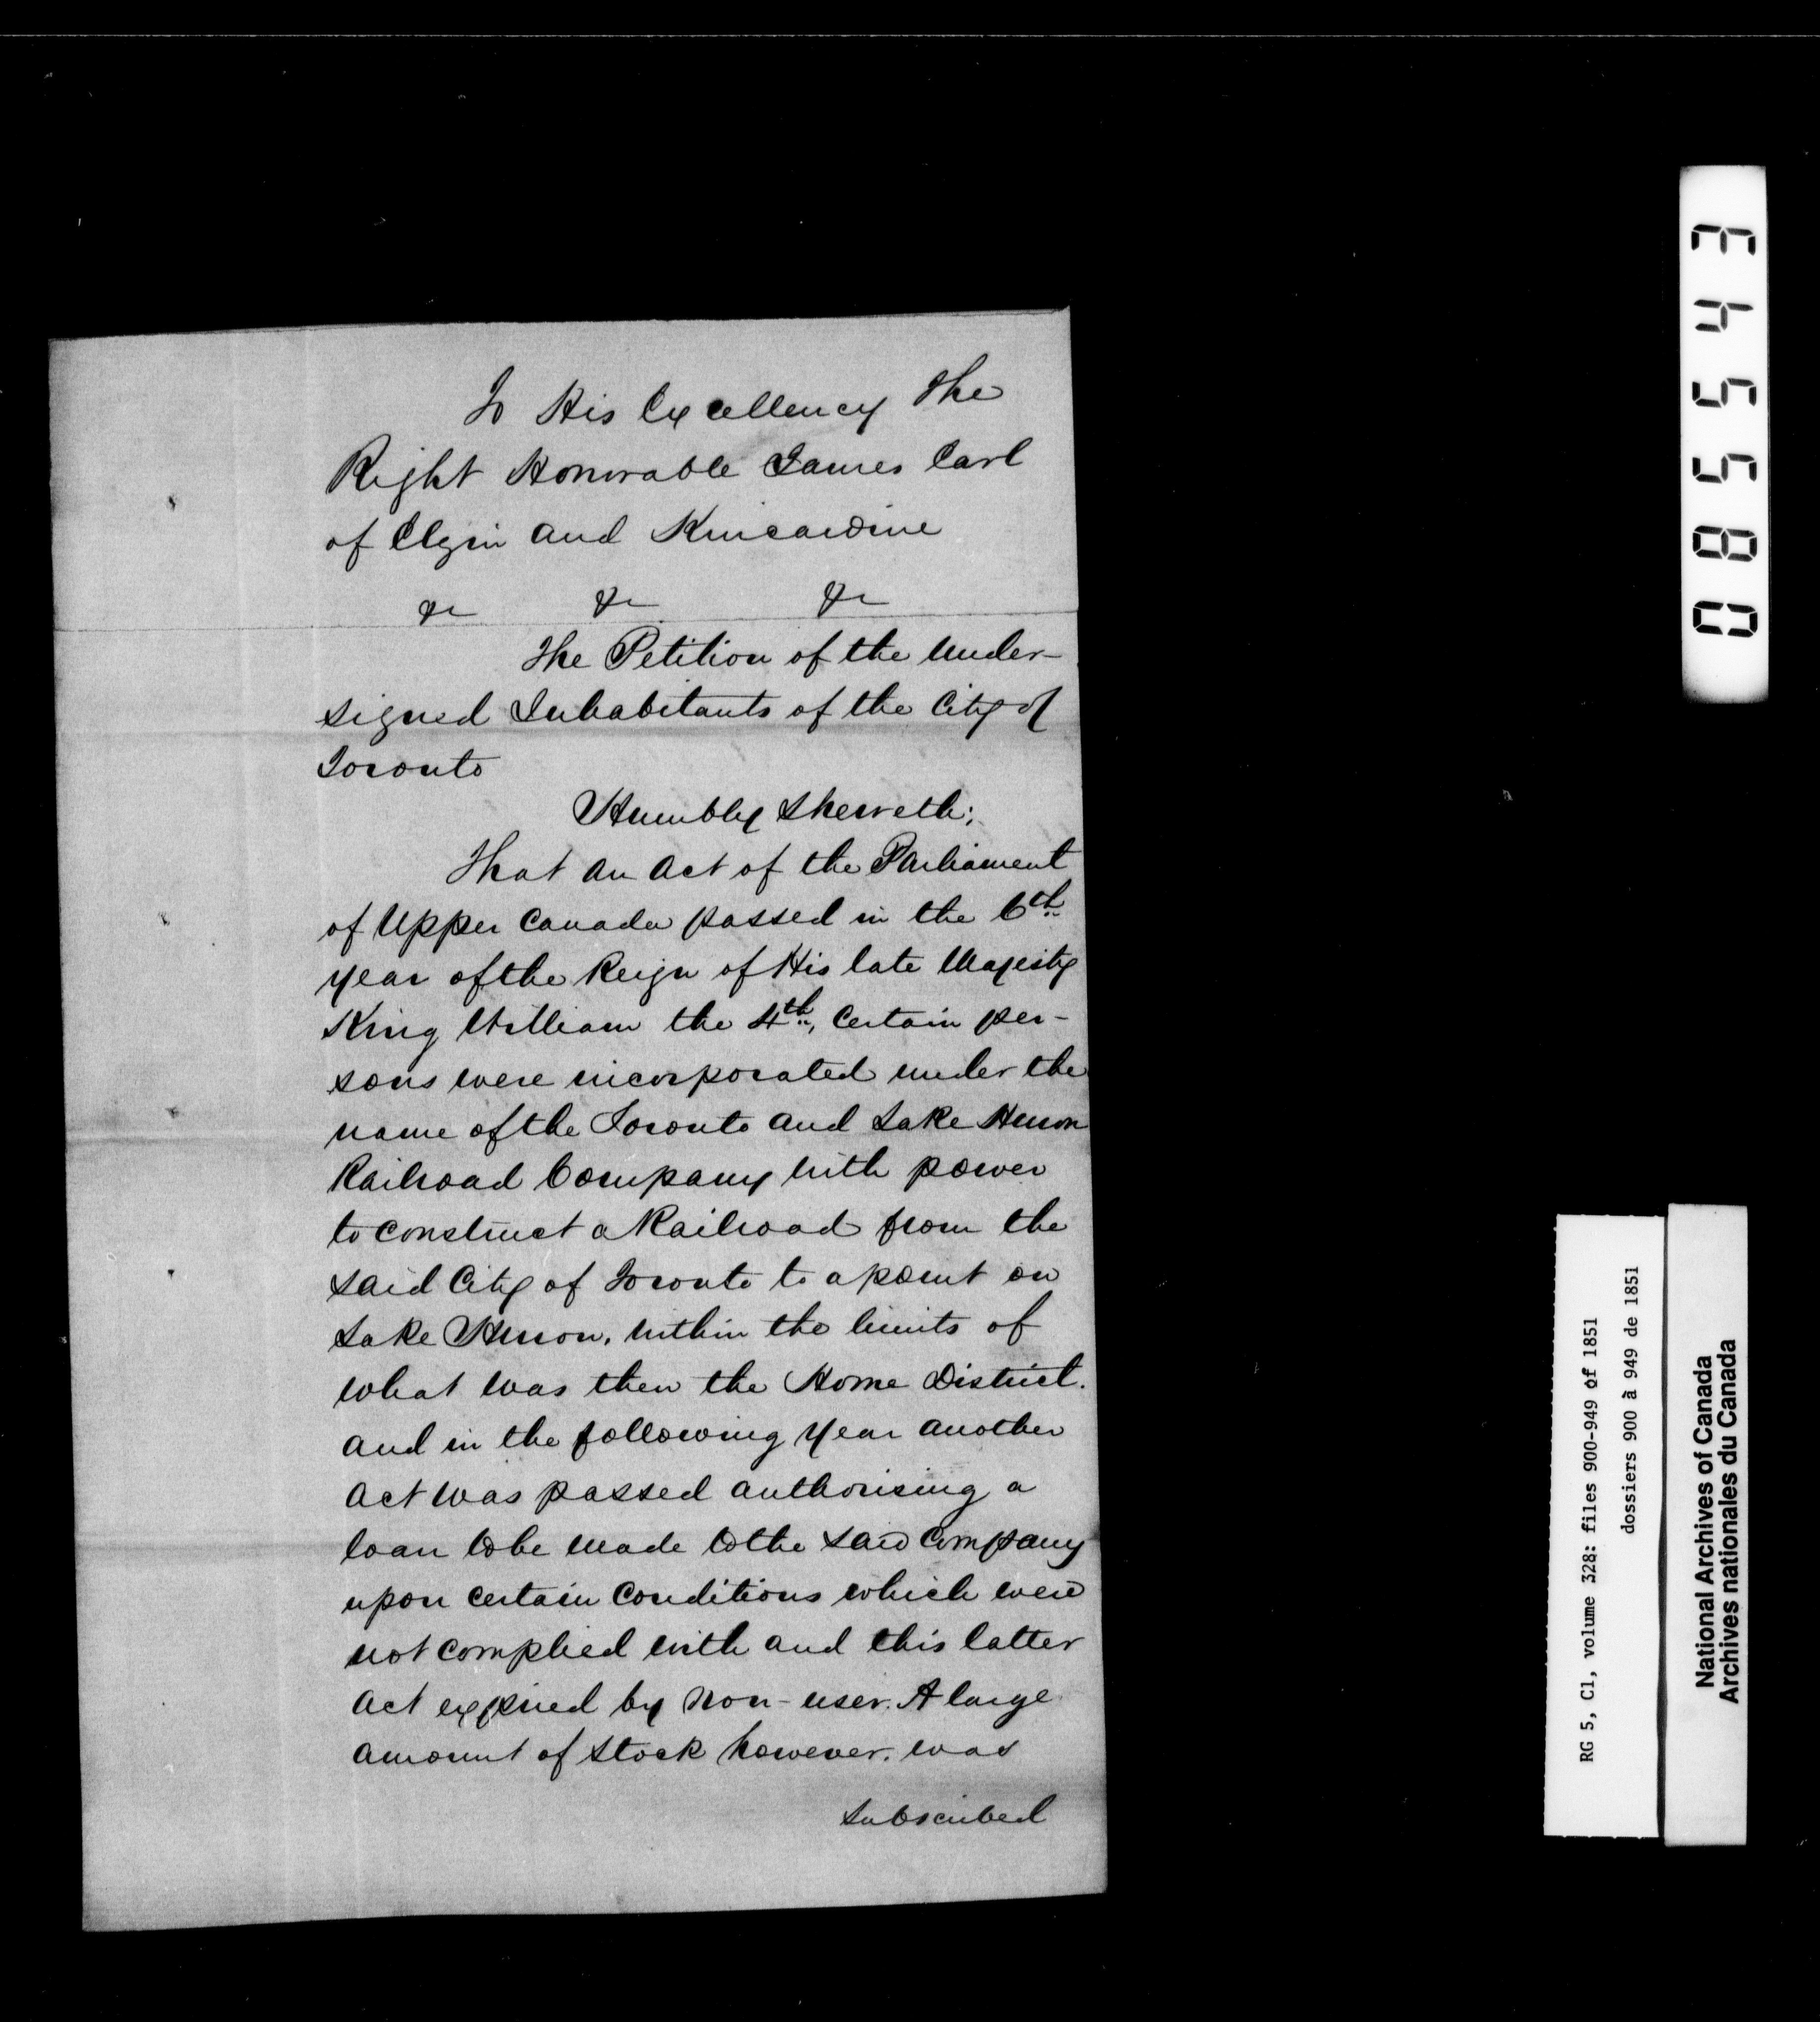 To His Excellency The
Right Honorable James Earl
of Elgin and Kincardine
&c &c &c
The Petition of the under-
signed Inhabitants of the City of
Toronto
Humbly Sheweth;
That an Act of the Parliament
of Upper Canada passed in the 6th
year of the Reign of His late Majesty
King William the 4th, Certain per-
sons were incorporated under the
name of the Toronto and Lake Huron
Railroad Company with power
to construct a Railroad from the
said City of Toronto to a point on
Lake Huron, within the limits of
what was then the Home District.
and in the following year another
Act was passed authorising a
loan to be made to the said Company
upon certain Conditions which were
not complied with and this latter
Act expired by Non-user. A large
amount of Stock however, was
Subscribed
085543
RG 5, C1, volume 328: files 900-949 of 1851
dossiers 900 à 949 de 1851
National Archives of Canada
Archives nationales du Canada